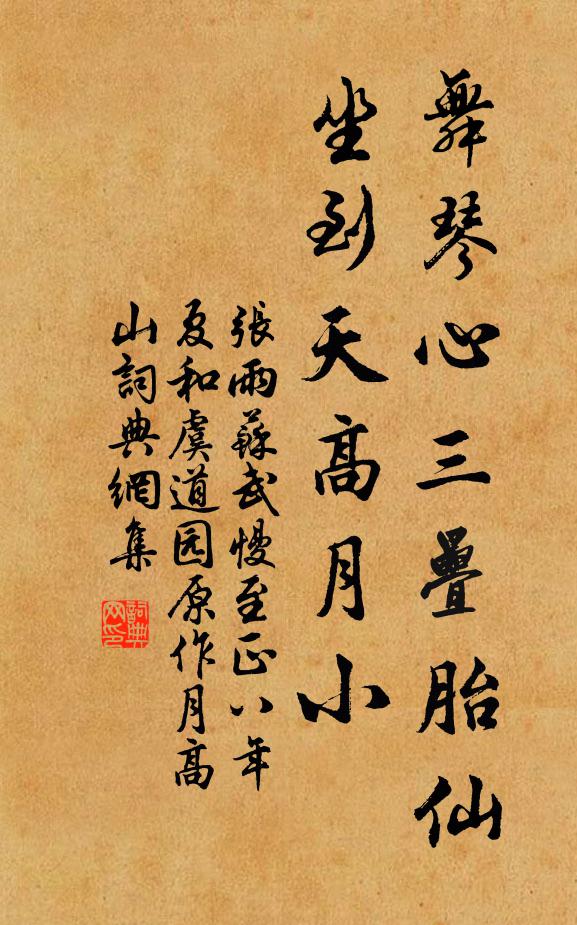 舞琴心三疊胎仙
坐到天高月小
張雨蘇武慢至正八年
夏和虞道园原作月高
山詞典網集
詞典网印